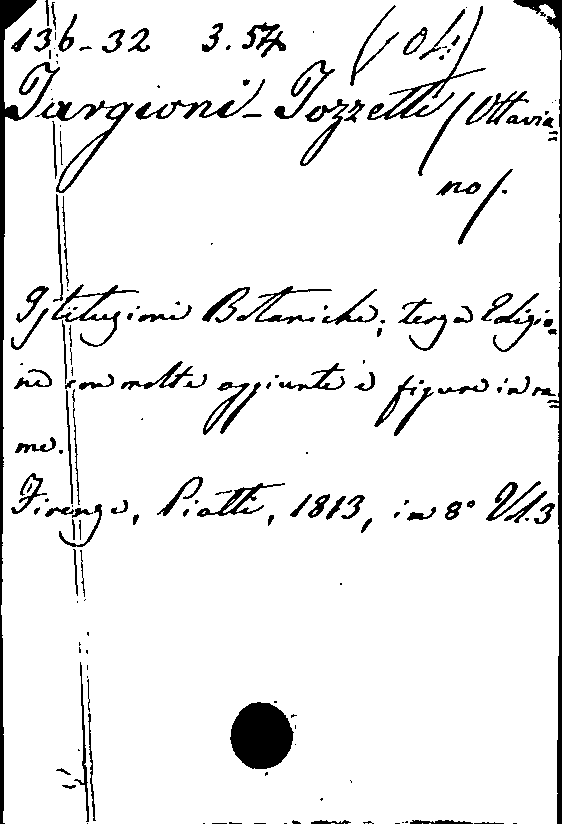 136-32 3.54 (04)
Targioni-Tozzetti (Ottavia=
no).
Istituzioni Botaniche; terza Edizio=
ne con molte aggiunte e figure in ra=
me.
Firenze, Piatti, 1813, in 8° Vl. 3